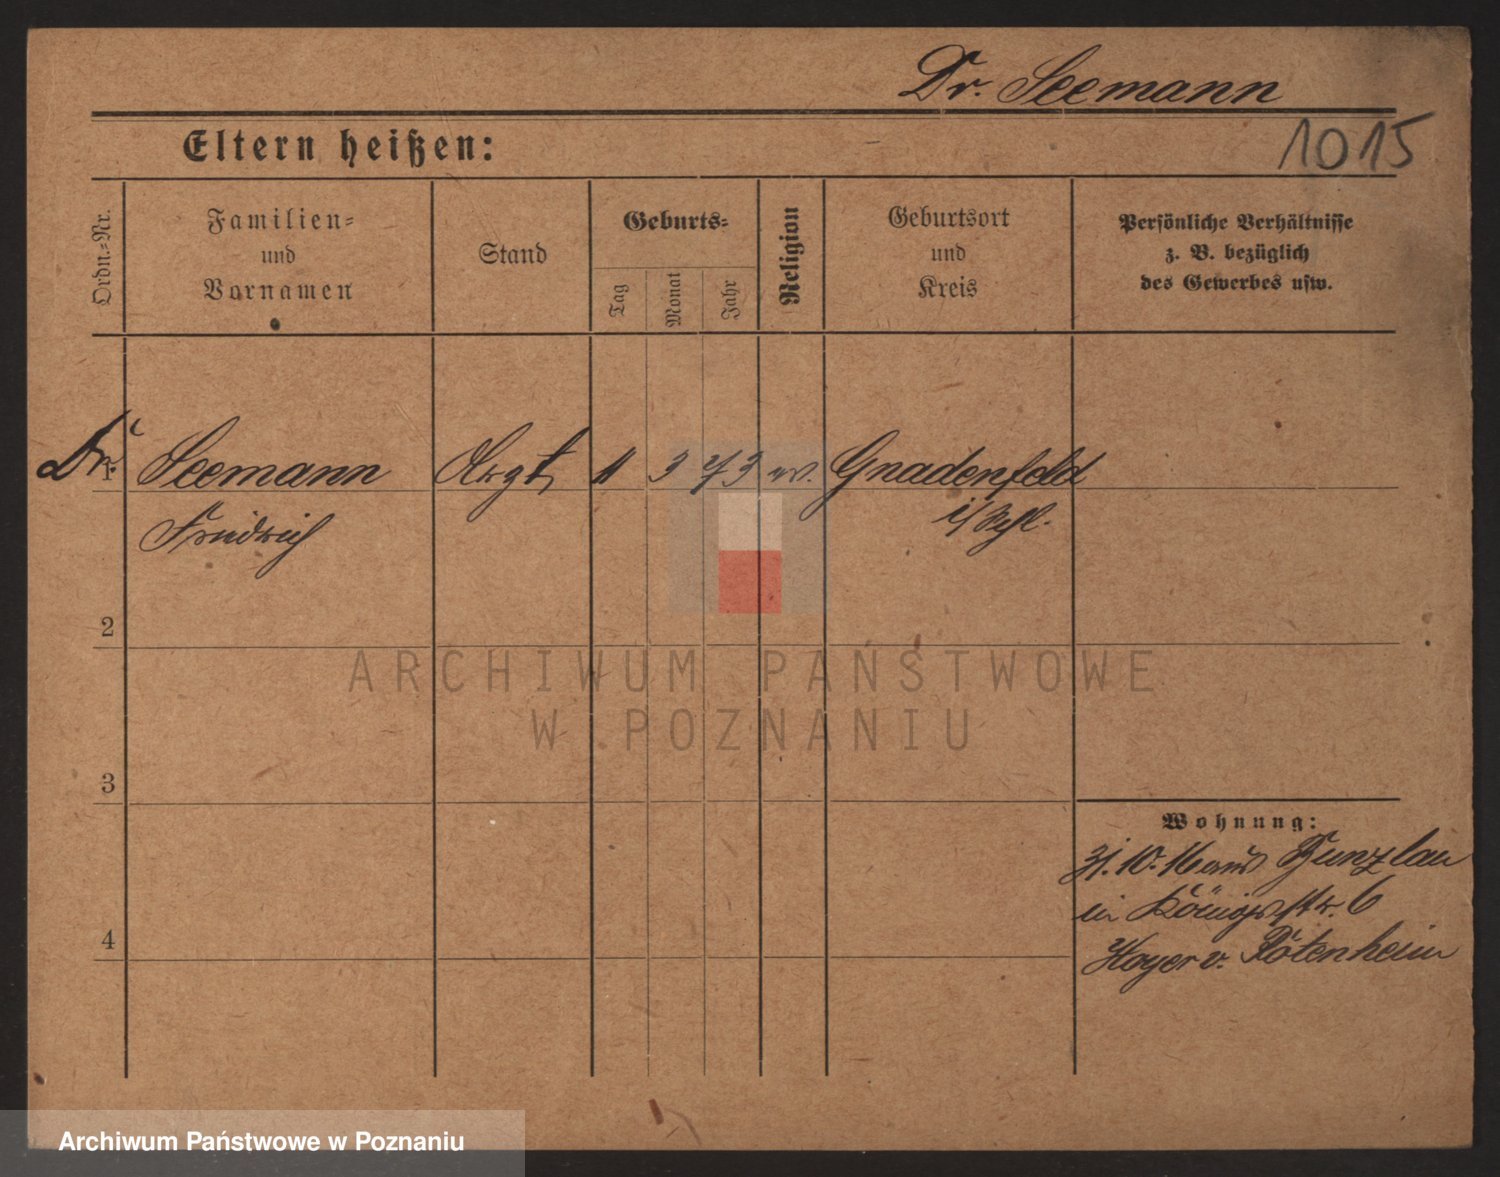 Dr. Seemann
1015
Eltern heißen:
Ordn.-Nr.
Familien-
und
Vornamen
Stand
Geburts-
Tag
Monat
Jahr
Religion
Geburtsort
und
Kreis
Persönliche Verhältnisse
z. B. bezüglich
des Gewerbes usw.
Dr. 1 Seemann Arzt 11 3 73 ev. Gnadenfeld
Friedrich i/Schl.
2
ARCHIWUM PAŃSTWOWE
W POZNANIU
3
Wohnung:
31.10.16 aus Bunzlau
in Königstr. 6
Hoyer v. Rotenheim
4
Archiwum Państwowe w Poznaniu